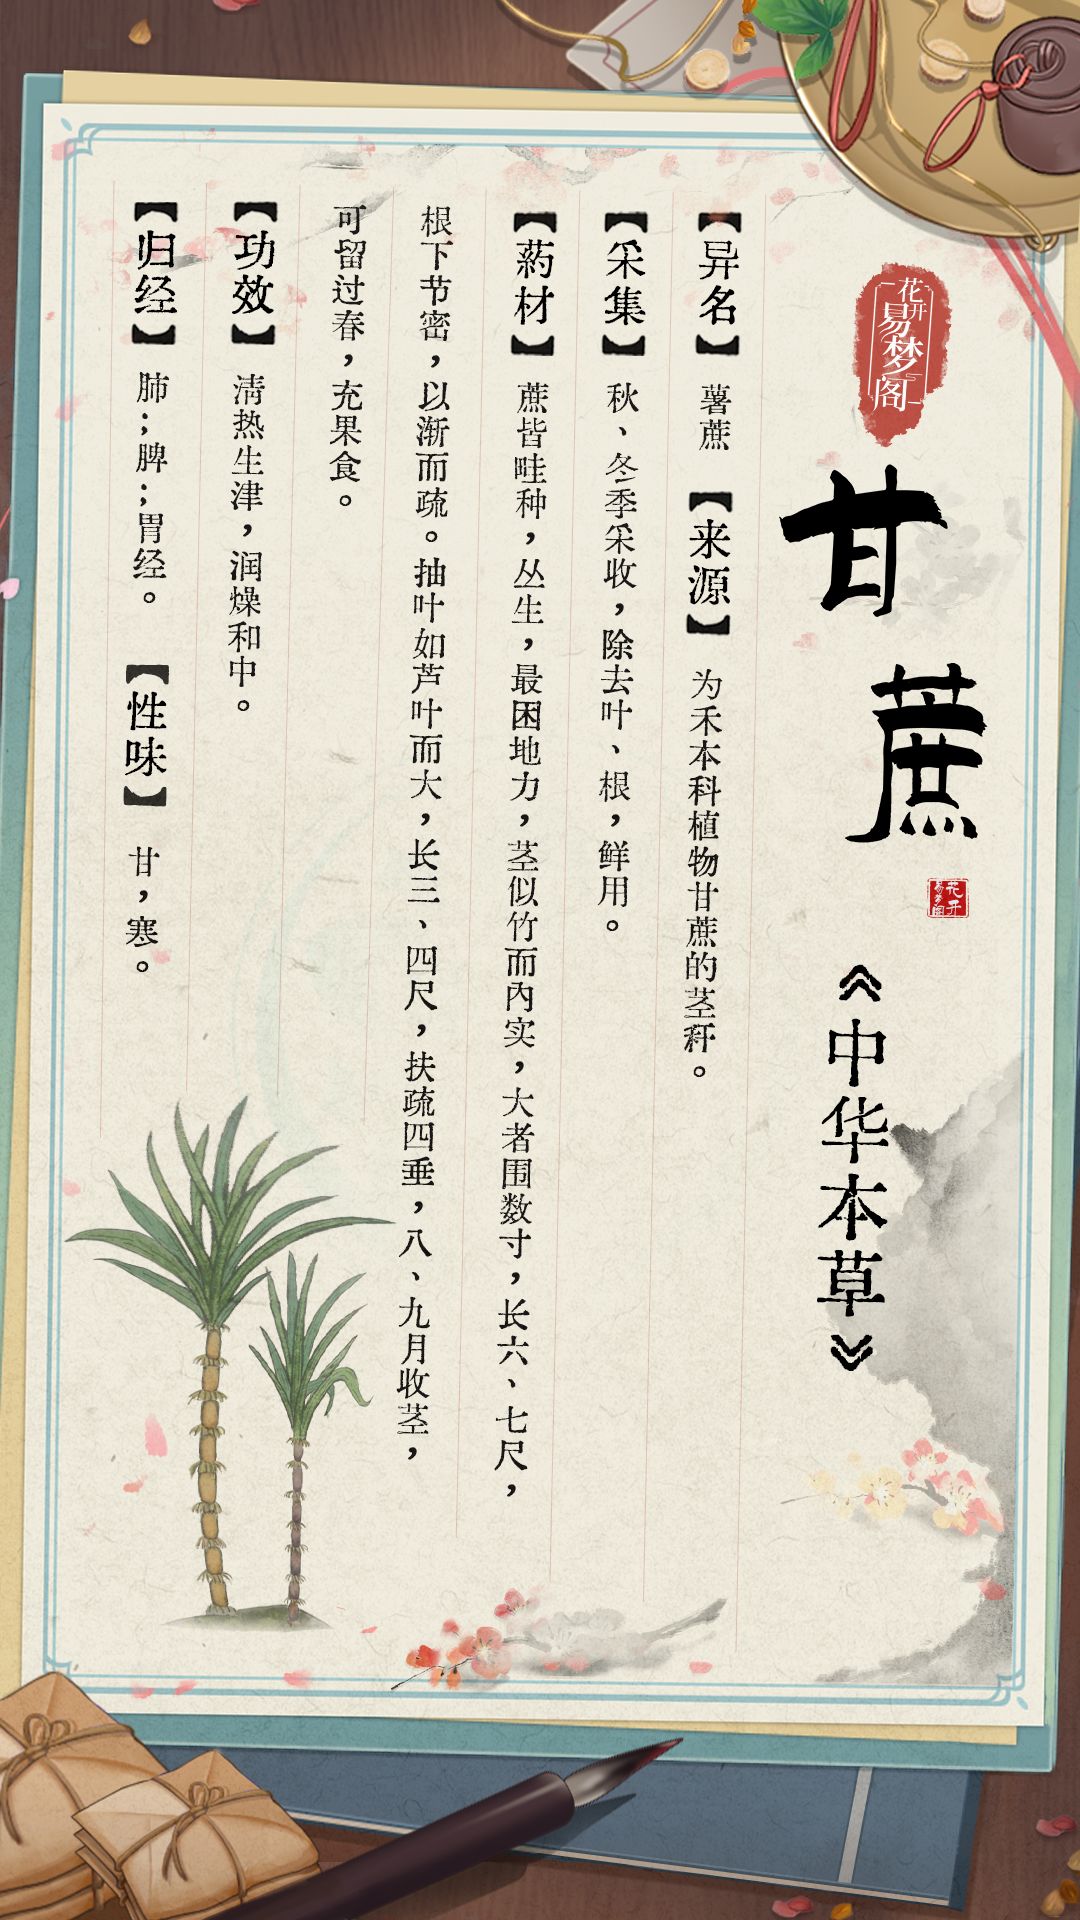 花开
易梦阁
甘蔗
花开
易梦阁
《中华本草》
【异名】薯蔗【来源】为禾本科植物甘蔗的茎秆。
【采集】秋、冬季采收，除去叶、根，鲜用。
【药材】蔗皆畦种，丛生，最困地力，茎似竹而内实，大者围数寸，长六、七尺，
根下节密，以渐而疏。抽叶如芦叶而大，长三、四尺，扶疏四垂，八、九月收茎，
可留过春，充果食。
【功效】清热生津，润燥和中。
【归经】肺；脾；胃经。【性味】甘，寒。